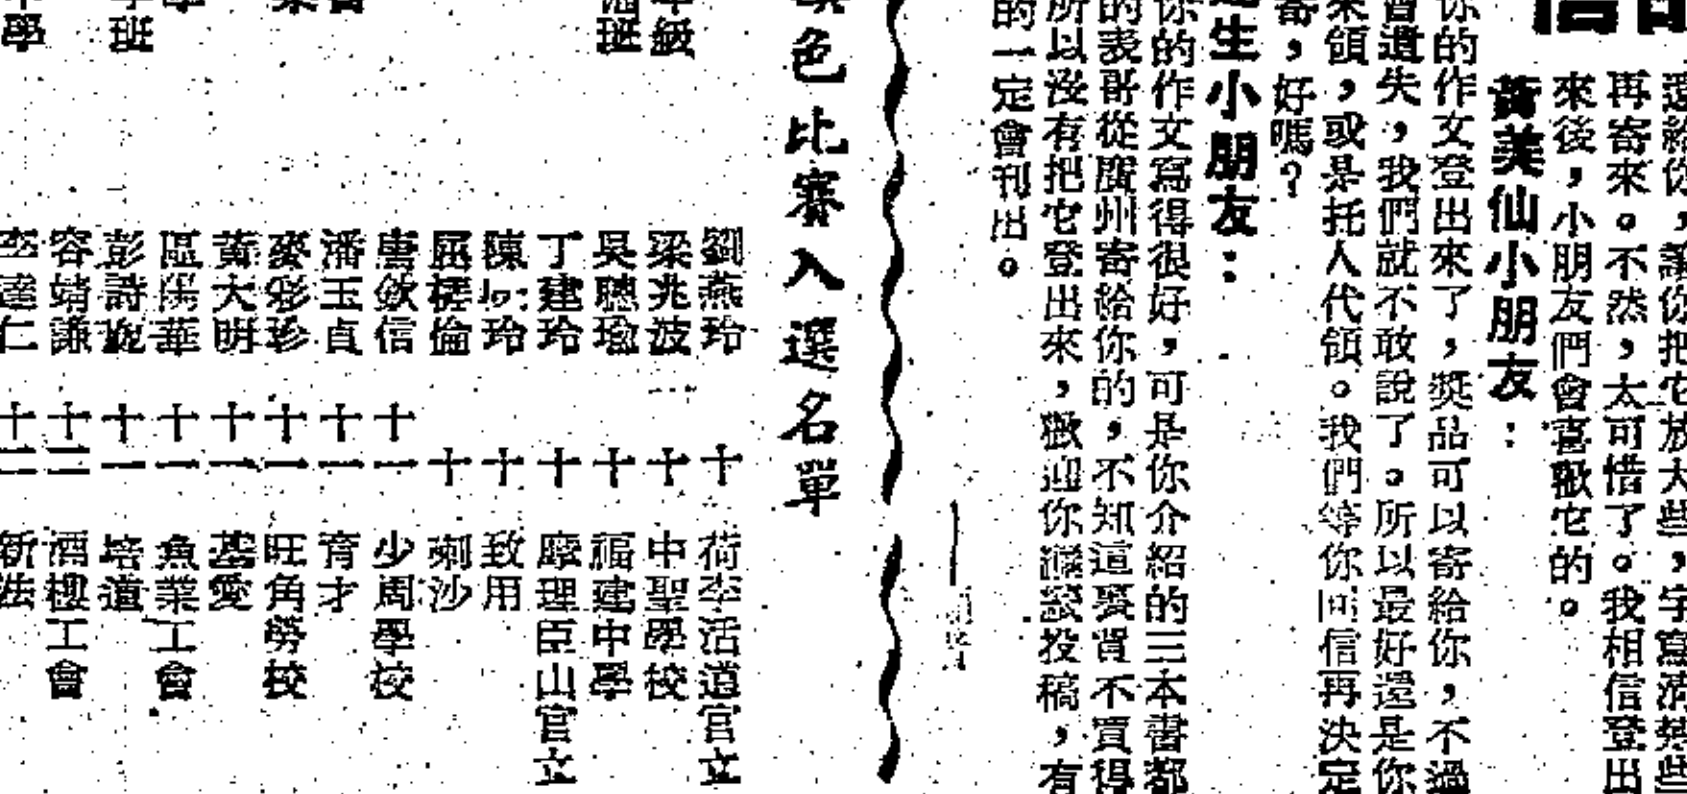 信
還給你，讓你把它放大些，字寫清楚些
再寄來。不然，太可惜了。我相信登出
來後，小朋友們會喜歡它的。
黃美仙小朋友：
你的作文登出來了，獎品可以寄給你，不過
會遺失，我們就不敢說了。所以最好還是你
來領，或是托人代領。我們等你回信再決定
寄，好嗎？
生小朋友：
你的作文寫得很好，可是你介紹的三本書都
的表哥從廣州寄給你的，不知這裏買不買得
所以沒有把它登出來，歡迎你繼續投稿，有
的一定會刊出。
色比賽入選名單
劉燕玲 十 荷李活道官立
梁兆波 十 中聖學校
吳聰瑜 十 福建中學
丁建玲 十 摩理臣山官立
陳 玲 十 致用
屈 倫 十 喇沙
唐歛信 十一 少周學校
潘玉貞 十一 育才
麥彩珍 十一 旺角勞校
黃大明 十一 基愛
區陽華 十一 魚業工會
彭詩 十一 培道
容靖謙 十二 酒樓工會
李達仁 十二 新法
年級
班
班
學